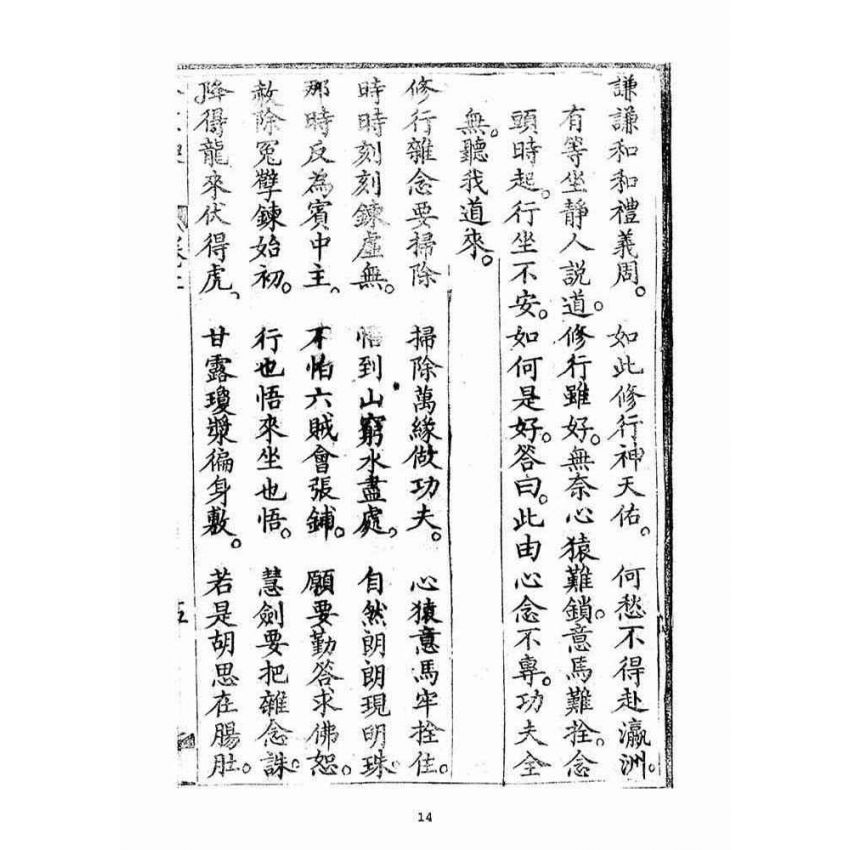 謙謙和和禮義周。如此修行神天佑。何愁不得赴瀛洲。
有等坐靜人說道。修行雖好。無奈心猿難鎖。意馬難拴。念
頭時起。行坐不安。如何是好。答曰。此由心念不專。功夫全
無。聽我道來。
修行雜念要掃除 掃除萬緣做功夫。心猿意馬牢拴住。
時時刻刻鍊虛無。悟到山窮水盡處。自然朗朗現明珠。
那時反為賓中主。不怕六賊會張鋪。願要勤答求佛恕。
赦除冤孽鍊始初。行也悟來坐也悟。慧劍要把雜念誅。
降得龍來伏得虎、甘露瓊漿徧身敷。若是胡思在腸肚。
五
14